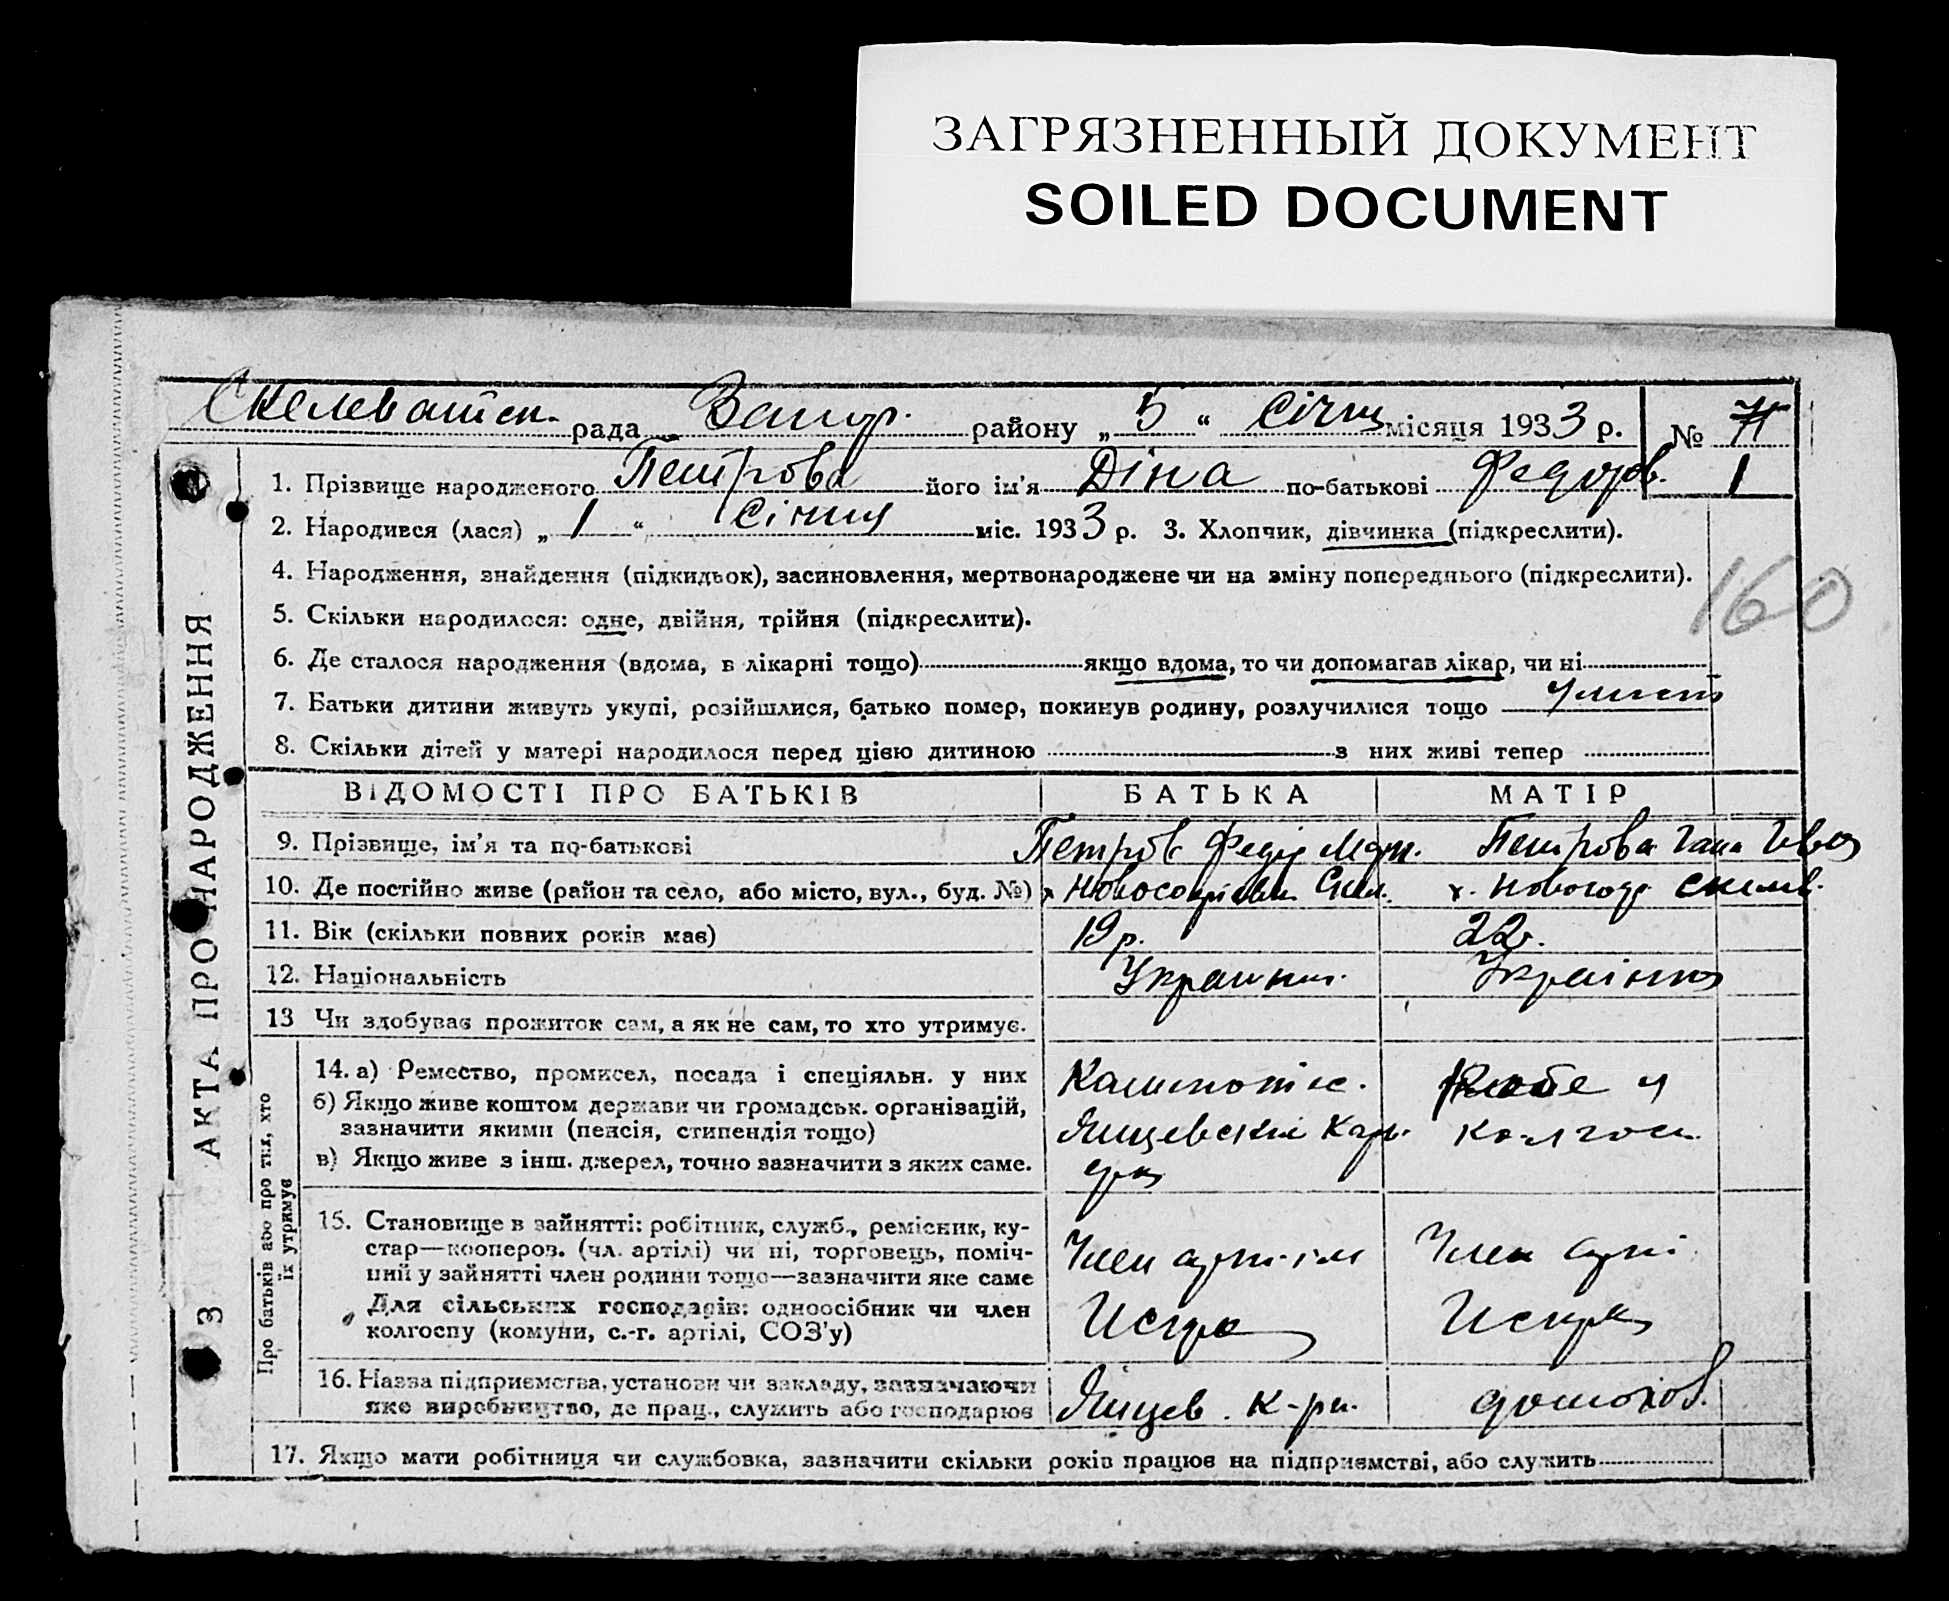 ЗАГРЯЗНЕННЫЙ ДОКУМЕНТ
SOILED DOCUMENT
Скелеватск. рада Запор. району „ 5 “ Січня місяця 1933 р. №
1. Прізвище народженого Петрова його ім'я Діна по-батькові Федоров. 1
2. Народився (лася) „ 1 “ Січня міс. 1933 р. 3. Хлопчик, дівчинка (підкреслити).
4. Народження, знайдення (підкидьок), засиновлення, мертвонароджене чи на зміну попереднього (підкреслити).
160
5. Скільки народилося: одне, двійня, трійня (підкреслити).
6. Де сталося народження (вдома, в лікарні тощо) якщо вдома, то чи допомагав лікар, чи ні
7. Батьки дитини живуть укупі, розійшлися, батько помер, покинув родину, розлучилися тощо
8. Скільки дітей у матері народилося перед цією дитиною з них живі тепер
ВІДОМОСТІ ПРО БАТЬКІВ БАТЬКА МАТІР
9. Прізвище, ім'я та по-батькові Петров Федір Петрова Гана
10. Де постійно живе (район та село, або місто, вул., буд. №)
11. Вік (скільки повних років має) 19 р. 22
12. Національність Українка
13 Чи здобуває прожиток сам, а як не сам, то хто утримує.
14. а) Ремество, промисел, посада і спеціяльн. у них
б) Якщо живе коштом держави чи громадськ. організацій,
зазначити якими (пенсія, стипендія тощо)
в) Якщо живе з інш. джерел, точно зазначити з яких саме.
15. Становище в зайнятті: робітник, служб., ремісник, ку-
стар—кооперов. (чл. артілі) чи ні, торговець, поміч-
ний у зайнятті член родини тощо—зазначити яке саме
Член Член
Для сільських господарів: одноосібник чи член
колгоспу (комуни, с.-г. артілі, СОЗ'у)
Искра Искра
16. Назва підприємства, установи чи закладу, зазначаючи
яке виробництво, де прац., служить або господарює
17. Якщо мати робітниця чи службовка, зазначити скільки років працює на підприємстві, або служить
З АКТА ПРО НАРОДЖЕННЯ
Про батьків або про тих, хто
їх утримує